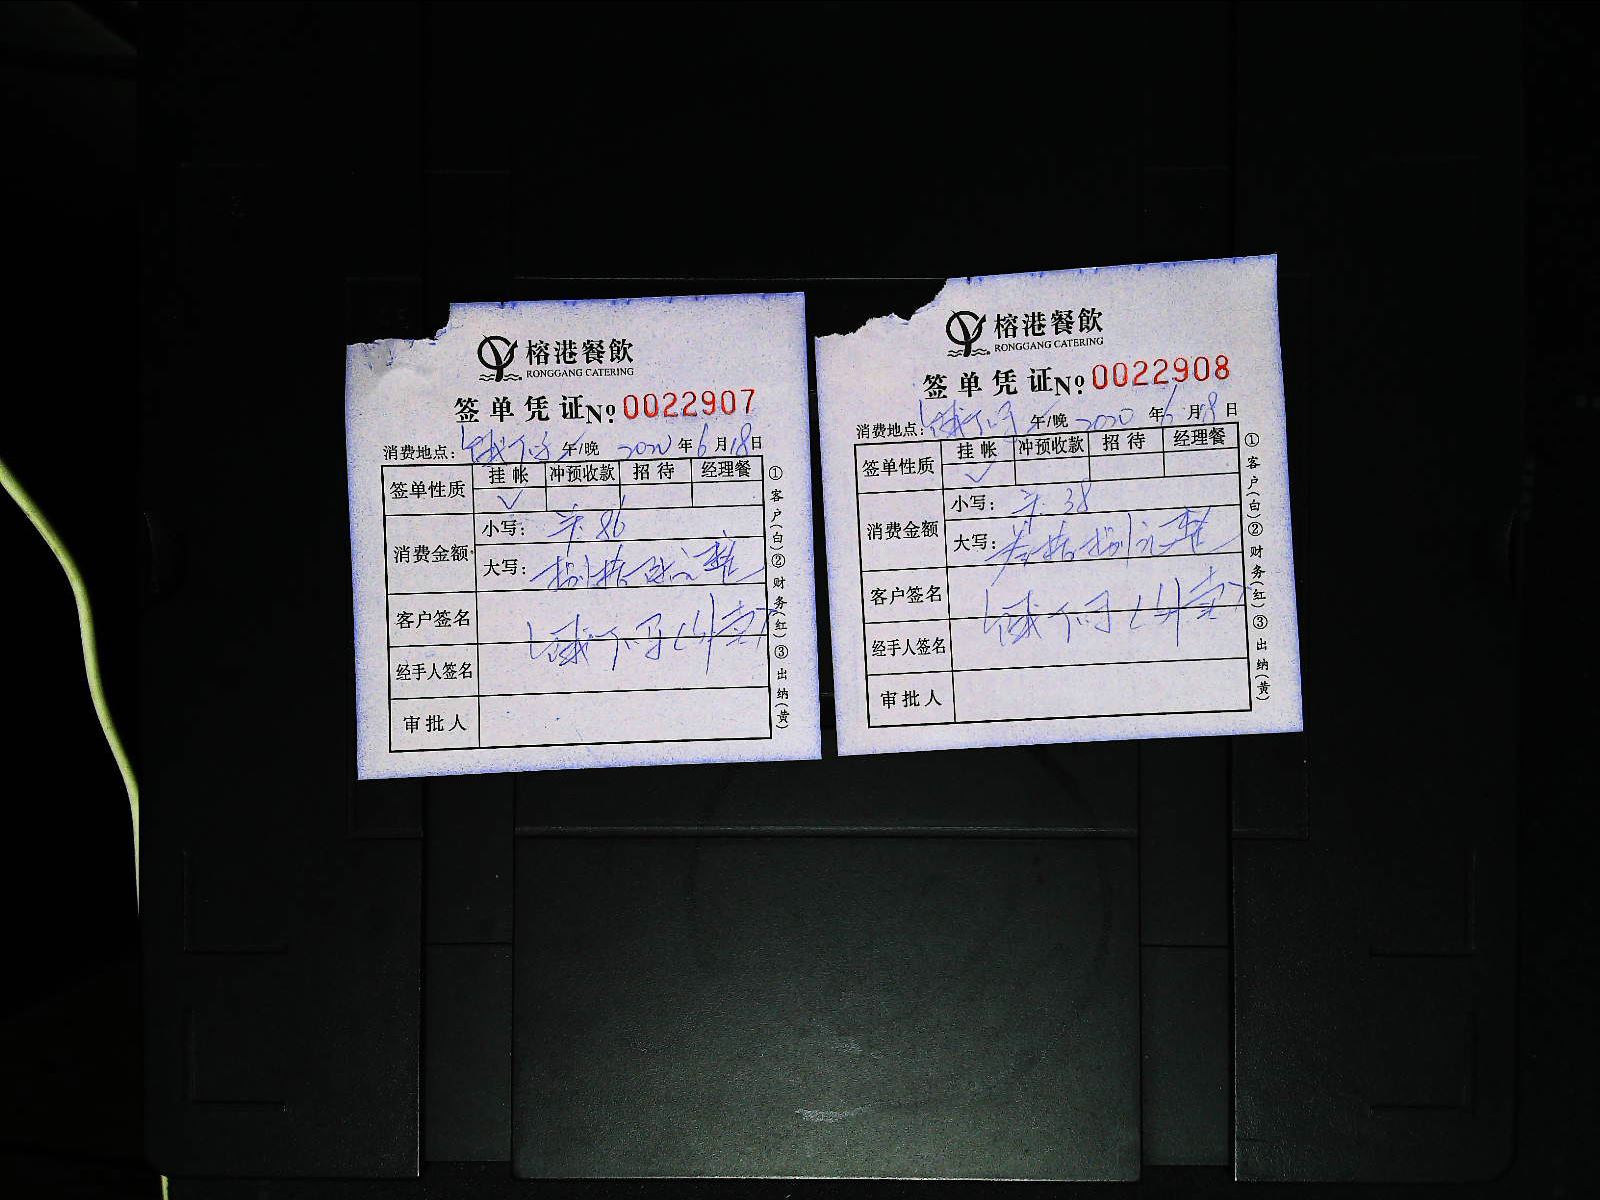 榕港餐飲
RONGGANG CATERING
签单凭证 No 0022907
消费地点: 饿不了 午/晚 2020 年 6 月 18 日
签单性质 挂帐 冲预收款 招待 经理餐
✓
消费金额 小写: 羊 86
大写: 捌拾陆元整
客户签名
饿不了(外卖)
经手人签名
审批人
①客户(白)②财务(红)③出纳(黄)
榕港餐飲
RONGGANG CATERING
签单凭证 No 0022908
消费地点: 饿不了 午/晚 2020 年 6 月 18 日
签单性质 挂帐 冲预收款 招待 经理餐
✓
消费金额 小写: 羊 38
大写: 叁拾捌元整
客户签名
饿不了(外卖)
经手人签名
审批人
①客户(白)②财务(红)③出纳(黄)